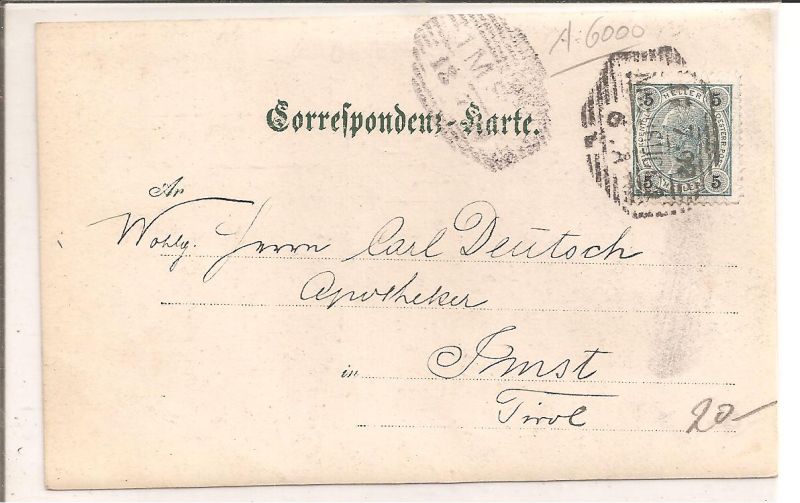 A.6000
Correspondenz-Karte.
An
Wohlg. Herrn Carl Deutsch
Apotheker
in Imst
Tirol
20-
5 HELLER 5
5 5
IMST